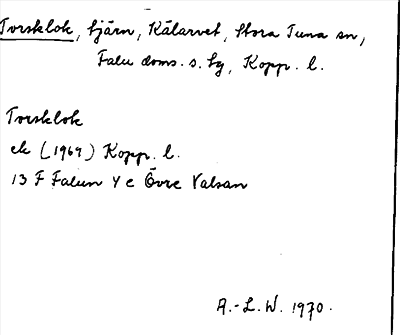 Torsklok, tjärn, Kålarvet, Stora Tuna sn,
Falu doms. s. tg, Kopp. l.
Torsklok
ek (1969) Kopp. l.
13 F Falun 4 c Övre Valsan
A.-L.W. 1970.